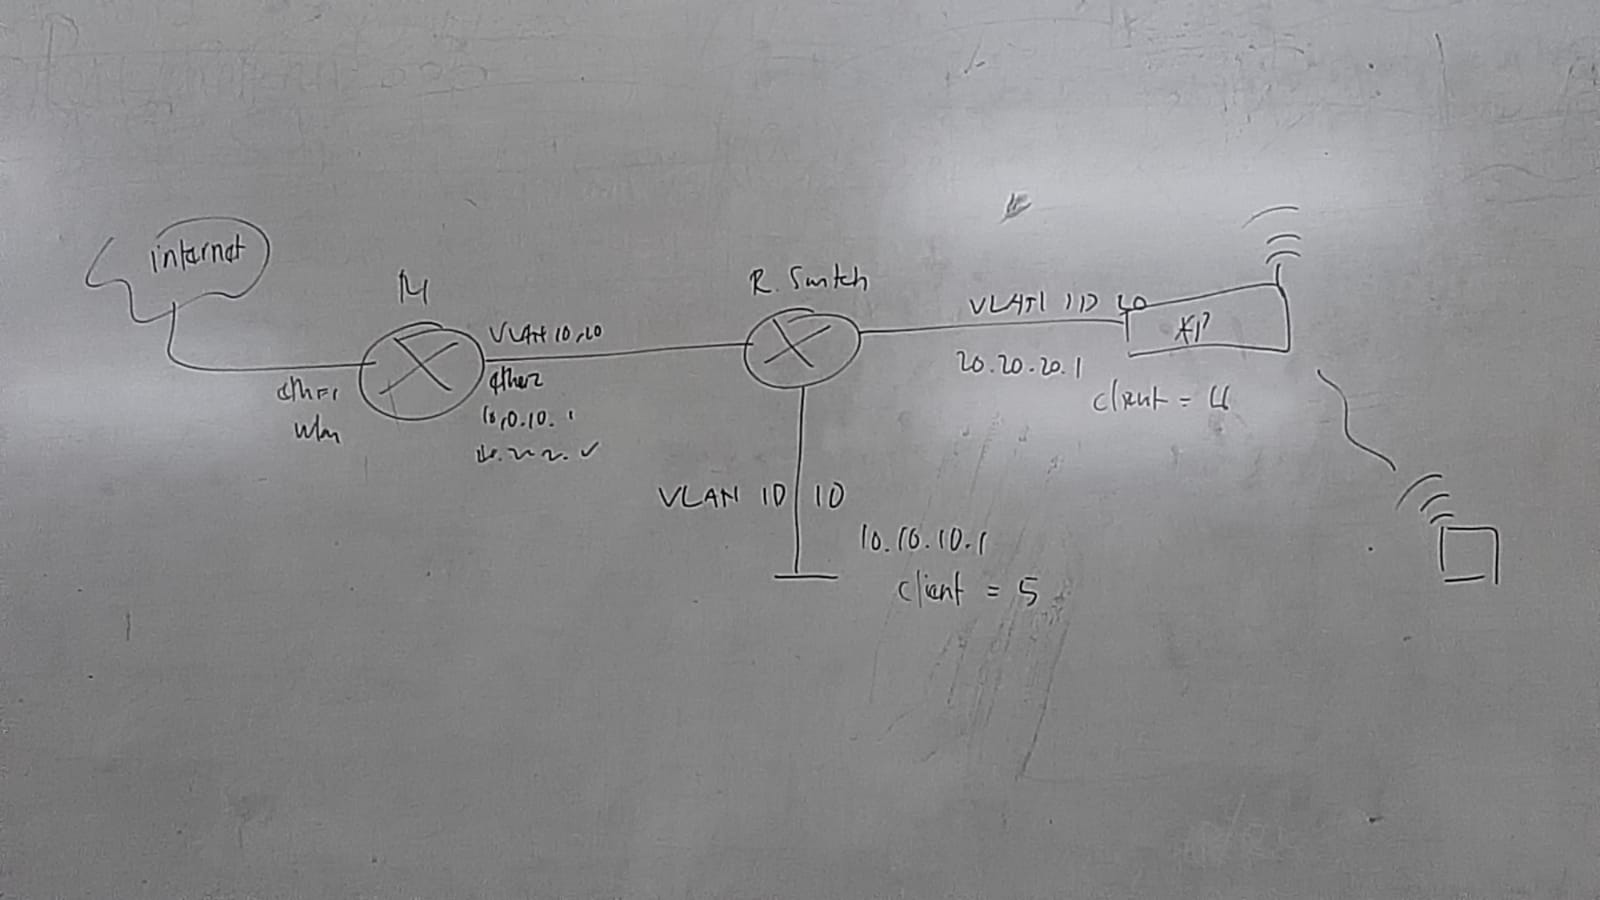 internet
M
ether1
wlan
VLAN 10,20
ether2
R. Switch
VLAN ID 20
20.20.20.1
AP
client = 4
VLAN ID 10
10.10.10.1
client = 5